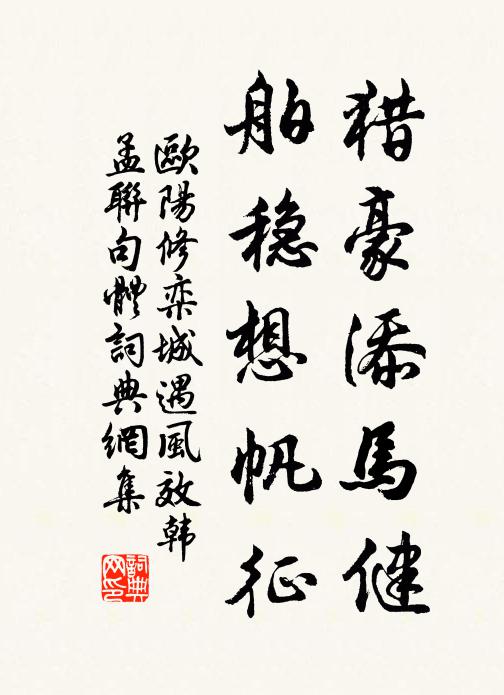 猎豪添馬健
舶稳想帆征
歐陽修栾城遇風效韩
孟聯句體詞典網集
詞典
网印